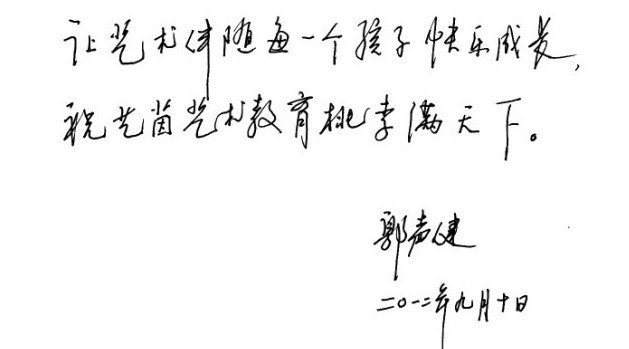 让艺术伴随每一个孩子快乐成长,
祝艺茵艺术教育桃李满天下。
郭声健
二〇一二年九月十日